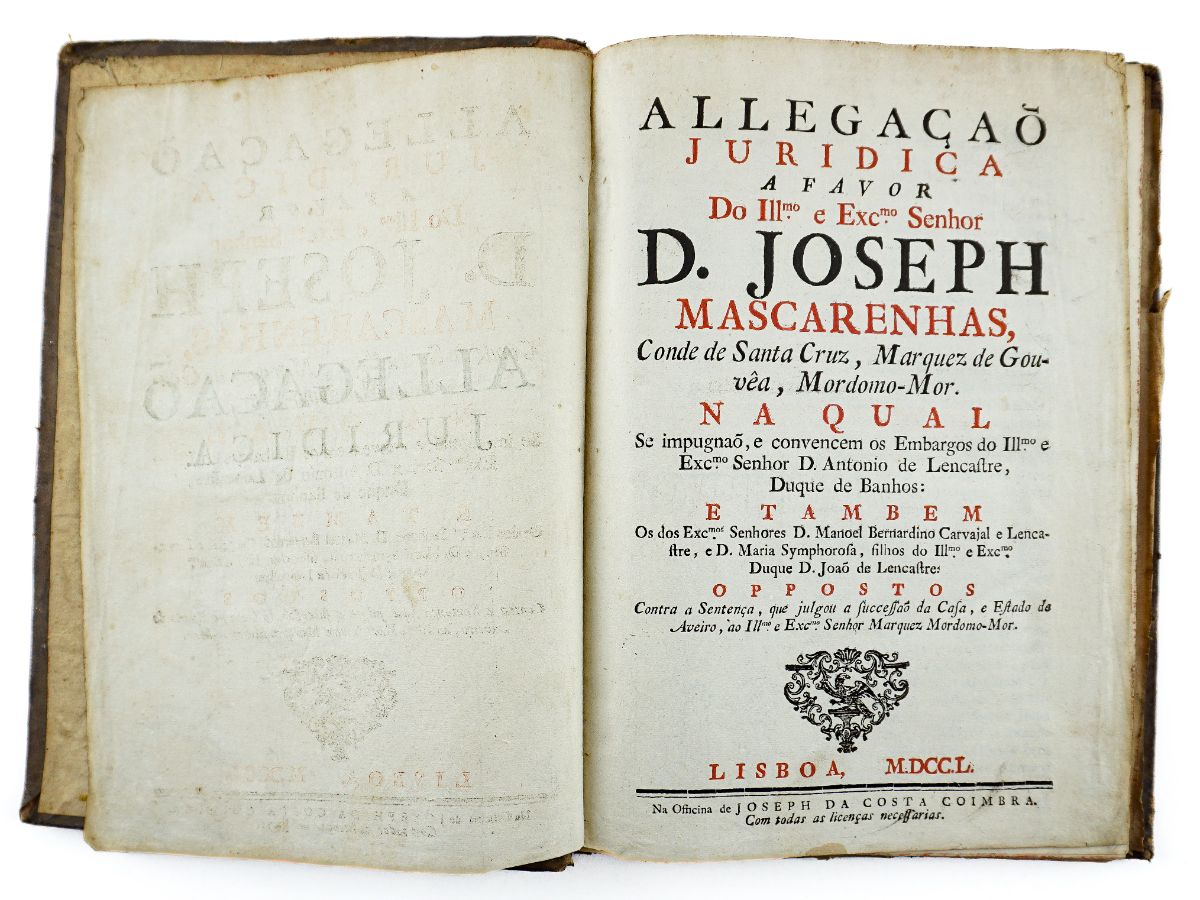 ALLEGAÇAÕ
JURIDICA
A FAVOR
Do Illmo. e Excmo. Senhor
D. JOSEPH
MASCARENHAS,
Conde de Santa Cruz, Marquez de Gou-
vêa, Mordomo-Mor.
NA QUAL
Se impugnaõ, e convencem os Embargos do Illmo. e
Excmo. Senhor D. Antonio de Lencaſtre,
Duque de Banhos:
E TAMBEM
Os dos Excmos. Senhores D. Manoel Bernardino Carvajal e Lenca-
ſtre, e D. Maria Symphoroſa, filhos do Illmo. e Excmo.
Duque D. Joaõ de Lencaſtre:
OPPOSTOS
Contra a Sentença, que julgou a ſucceſſaõ da Caſa, e Eſtado de
Aveiro, ao Illmo. e Excmo. Senhor Marquez Mordomo-Mor.
LISBOA, M.DCC.L.
Na Officina de JOSEPH DA COSTA COIMBRA.
Com todas as licenças neceſſarias.